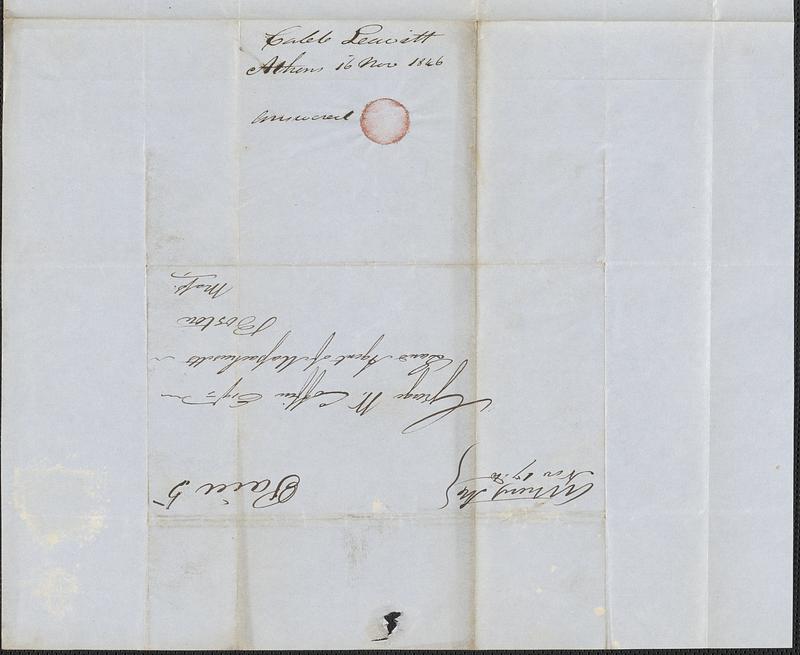 Caleb Leavitt
Athens 16 Nov 1846
answered
Athens Me
Nov 17th
Paid 5
George W Coffin Esqr
Land Agent of Massachusetts
Boston
Mass.